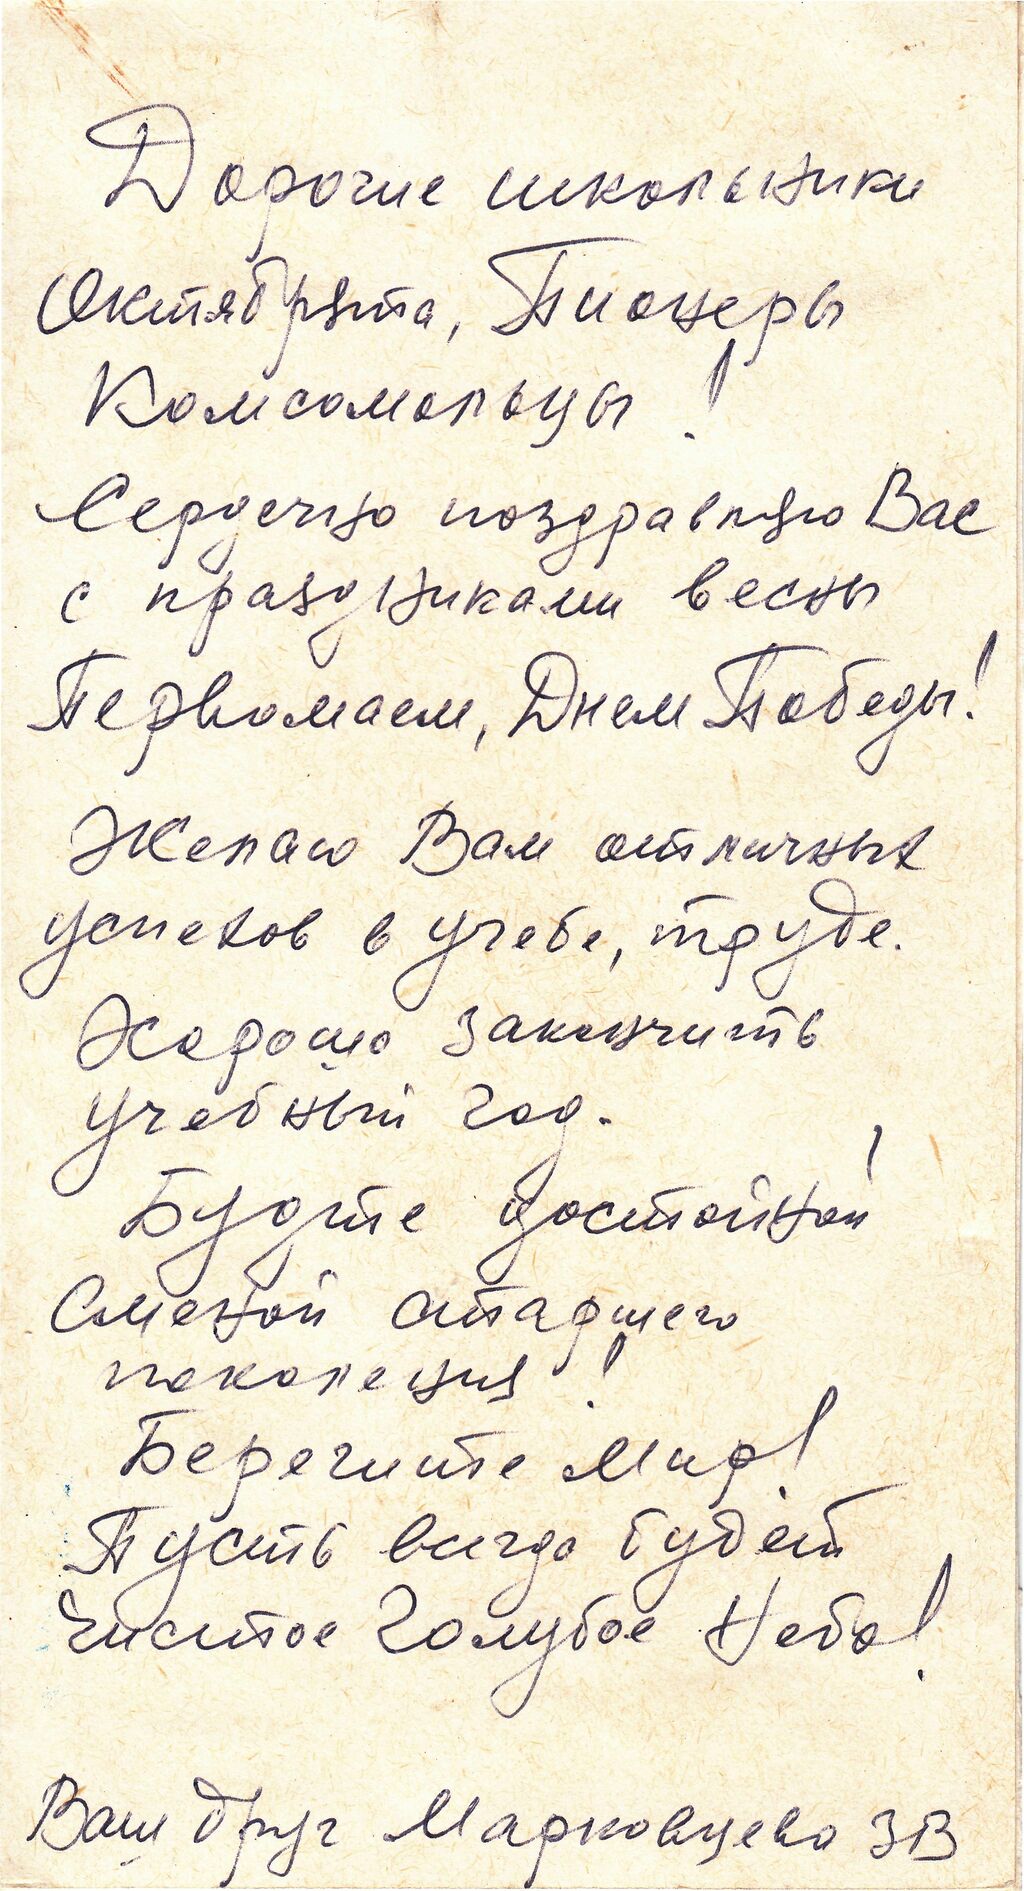 Дорогие школьники
Октябрята, Пионеры
Комсомольцы!
Сердечно поздравляю Вас
с праздниками весны
Первомаем, Днем Победы!
Желаю Вам отличных
успехов в учебе, труде.
Хорошо закончить
учебный год.
Будте достойной
Сменой старшего
поколения!
Берегите мир!
Пусть всегда будет
Чистое Голубое Небо!
Ваш друг Марковцева ЗВ